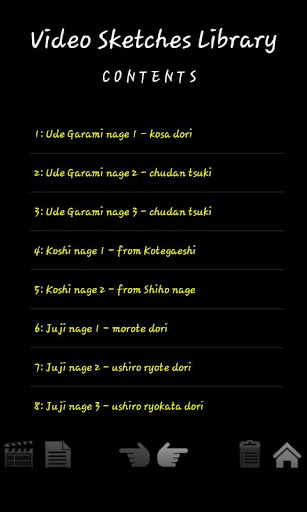 Video Sketches Library
CONTENTS
1: Ude Garami nage 1 - kosa dori
2: Ude Garami nage 2 - chudan tsuki
3: Ude Garami nage 3 - chudan tsuki
4: Koshi nage 1 - from Kotegaeshi
5: Koshi nage 2 - from Shiho nage
6: Juji nage 1 - morote dori
7: Juji nage 2 - ushiro ryote dori
8: Juji nage 3 - ushiro ryokata dori